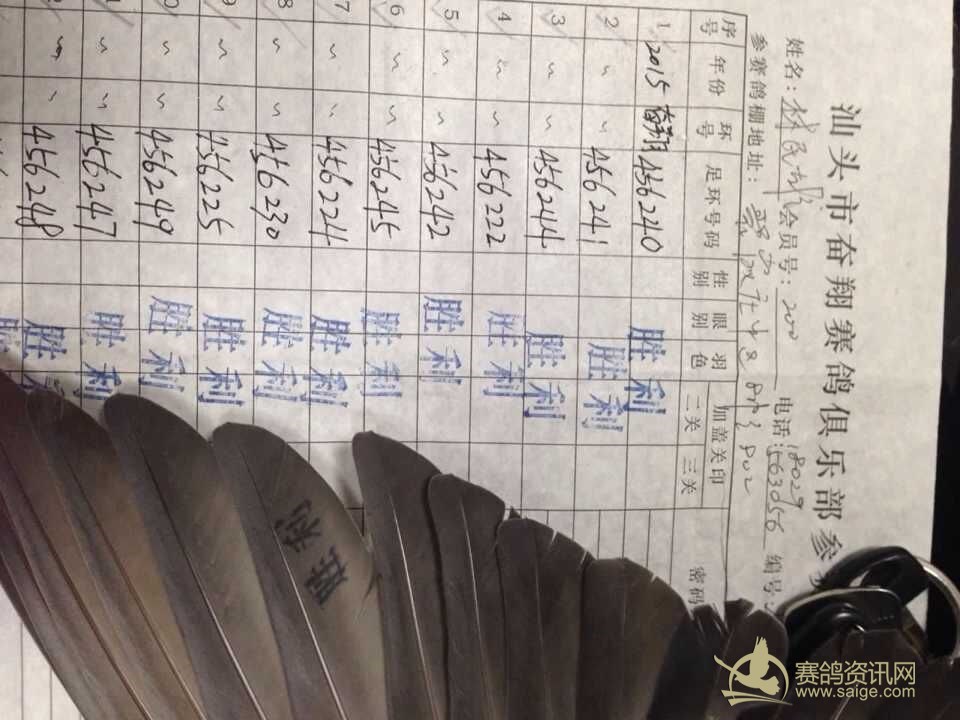 汕头市奋翔赛鸽俱乐部参
姓名: 会员号: 200 电话: 编号:
参赛鸽棚地址:
序号 年份 环号 足环号码 性别 眼别 羽色 加盖关印 二关 三关 密码
1 2015 奋翔 456240 胜利
2 〃 〃 456241 胜利
3 〃 〃 456244 胜利
4 〃 〃 456222 胜利
5 〃 〃 456242 胜利
6 〃 〃 456245 胜利
7 〃 〃 456224 胜利
8 〃 〃 456230 胜利
9 〃 〃 456225 胜利
〃 〃 456249 胜利
〃 〃 456247 胜利
〃 〃 456248 胜利
胜利
赛鸽资讯网
www.saige.com